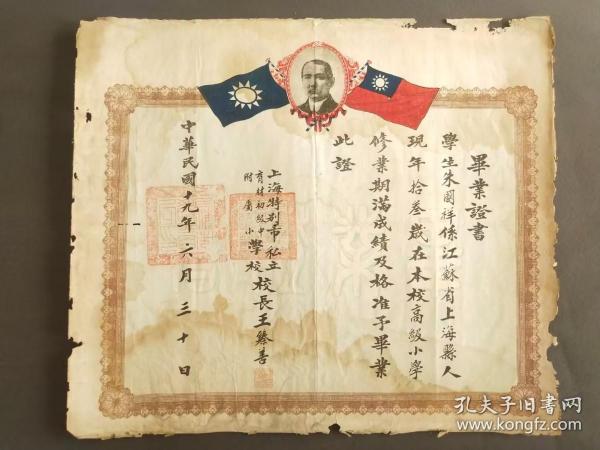 畢業證書
學生朱國祥係江蘇省上海縣人
現年拾叁歲在本校高級小學
修業期滿成績及格准予畢業
此證
上海特別市私立
育材初級中
附屬小
學校校長王
善
中華民國十九年六月三十日
孔夫子旧书网
www.kongfz.com